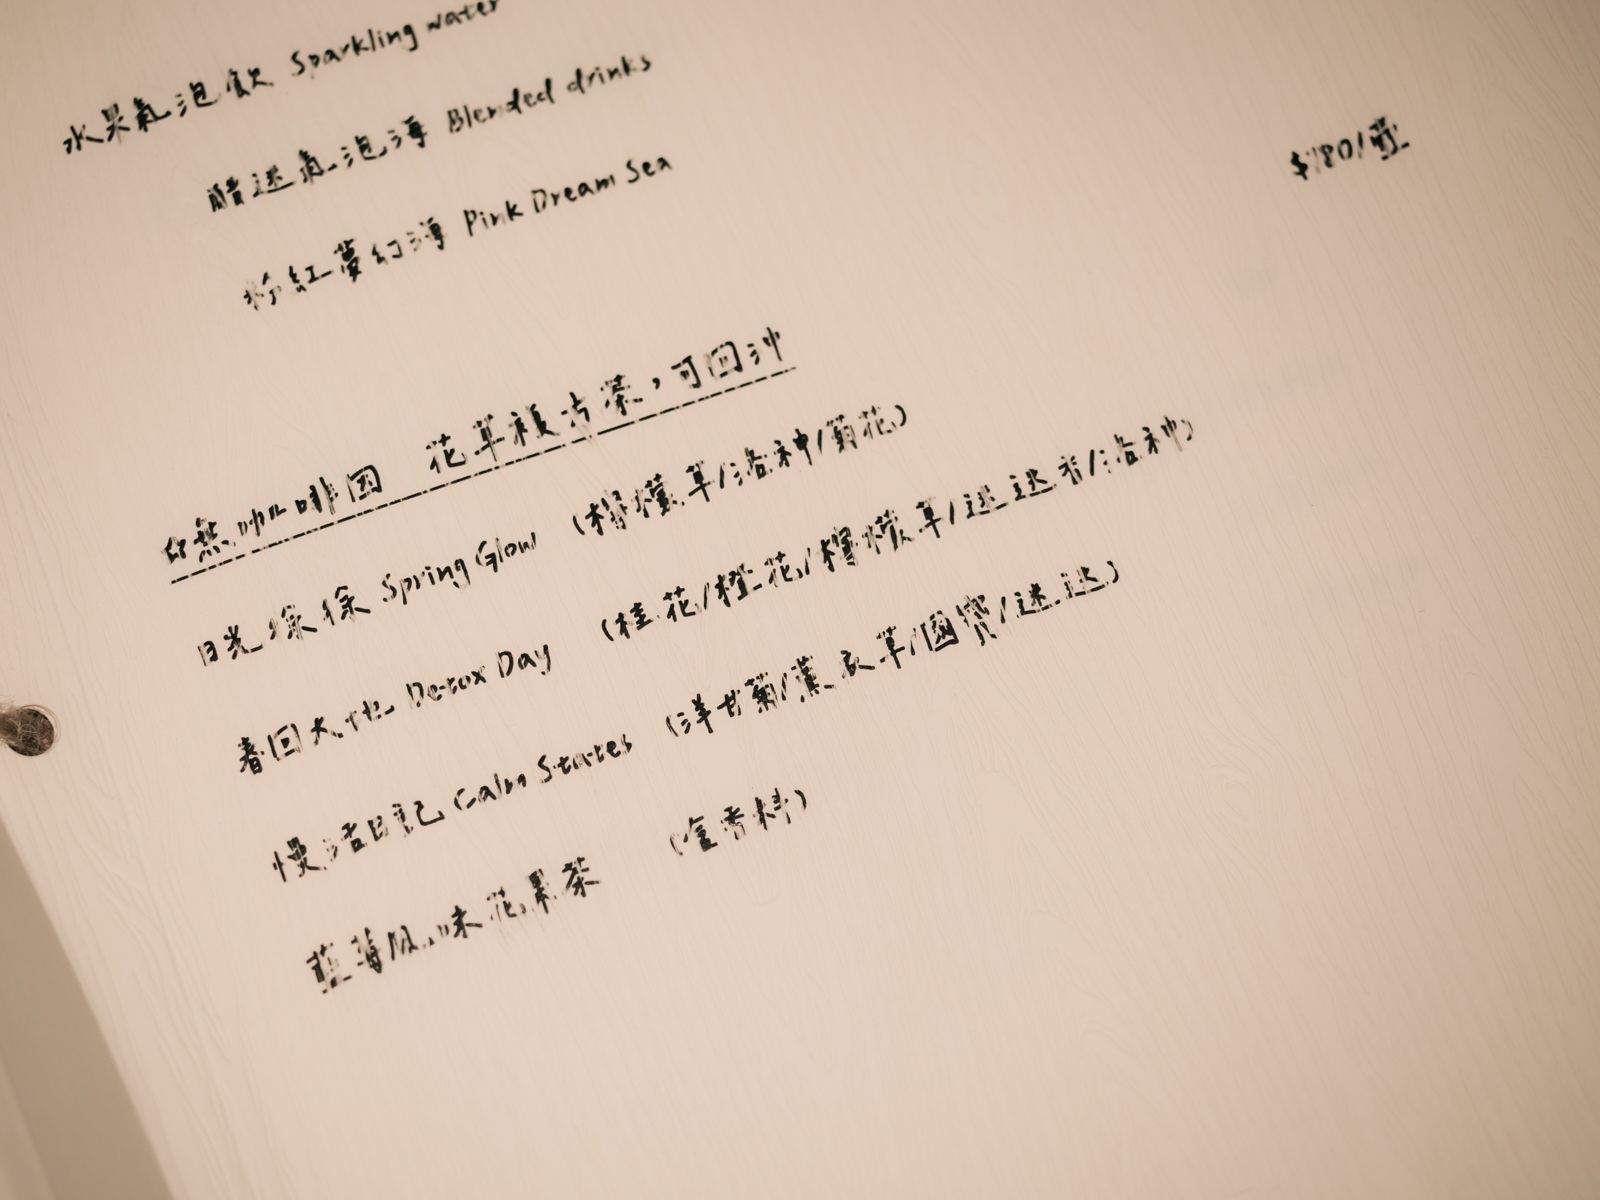 水果氣泡飲 Sparkling water
醋迷氣泡海 Blended drinks
粉紅夢幻海 Pink Dream Sea
$180/壺
無咖啡因 花草複方茶，可回沖
日光徐徐 Spring Glow （檸檬草/洛神/菊花）
春回大地 Detox Day （桂花/橙花/檸檬草/迷迭香/洛神）
慢活日記 Calm States （洋甘菊/薰衣草/國寶/迷迭）
藍莓風味花果茶 （含香料）